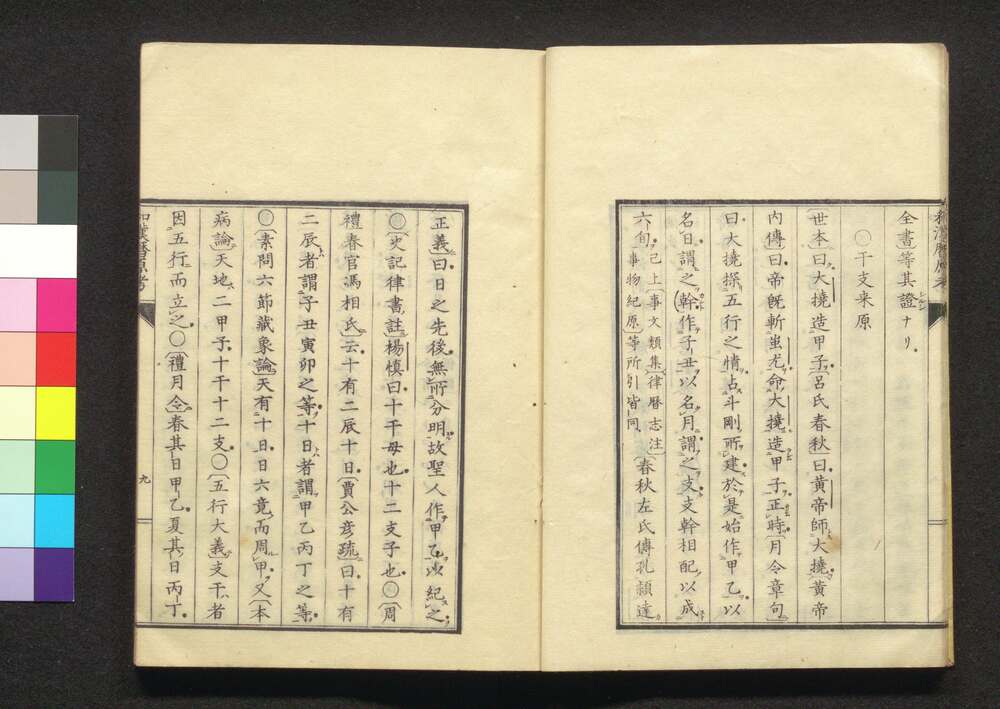 全書等其證ナリ
〇干支来原
世本曰大撓造甲子呂氏春秋曰黄帝師大撓黄帝
内傳曰帝既斬蚩尤命大撓造甲子正時月令章句
曰大撓探五行之情占斗剛所建於是始作甲乙以
名日謂之幹作子丑以名月謂之支支幹相配以成
六旬已上事文類集律暦志注事物紀原等所引皆同春秋左氏傳孔頴達
正義曰日之先後無所分明故聖人作甲乙以紀之
〇史記律書註楊慎曰十干母也十二支子也〇周
禮春官馮相氏云十有二辰十日賈公彦疏曰十有
二辰者謂子丑寅卯之等十日者謂甲乙丙丁之等
〇素問六節藏象論天有十日日六竟而周甲又本
病論天地二甲子十干十二支〇五行大義支干者
因五行而立之〇禮月令春其日甲乙夏其日丙丁
九